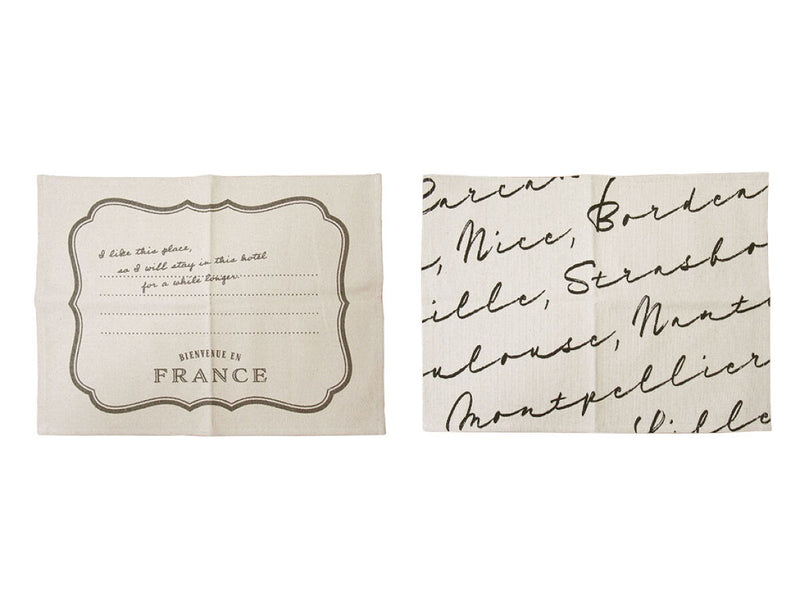 I like this place,
so I will stay in this hotel
for a while longer.
BIENVENUE EN
FRANCE
Carcas
, Nice, Bordea
ille, Strasbo
ulouse, Nant
Montpellier
Lille